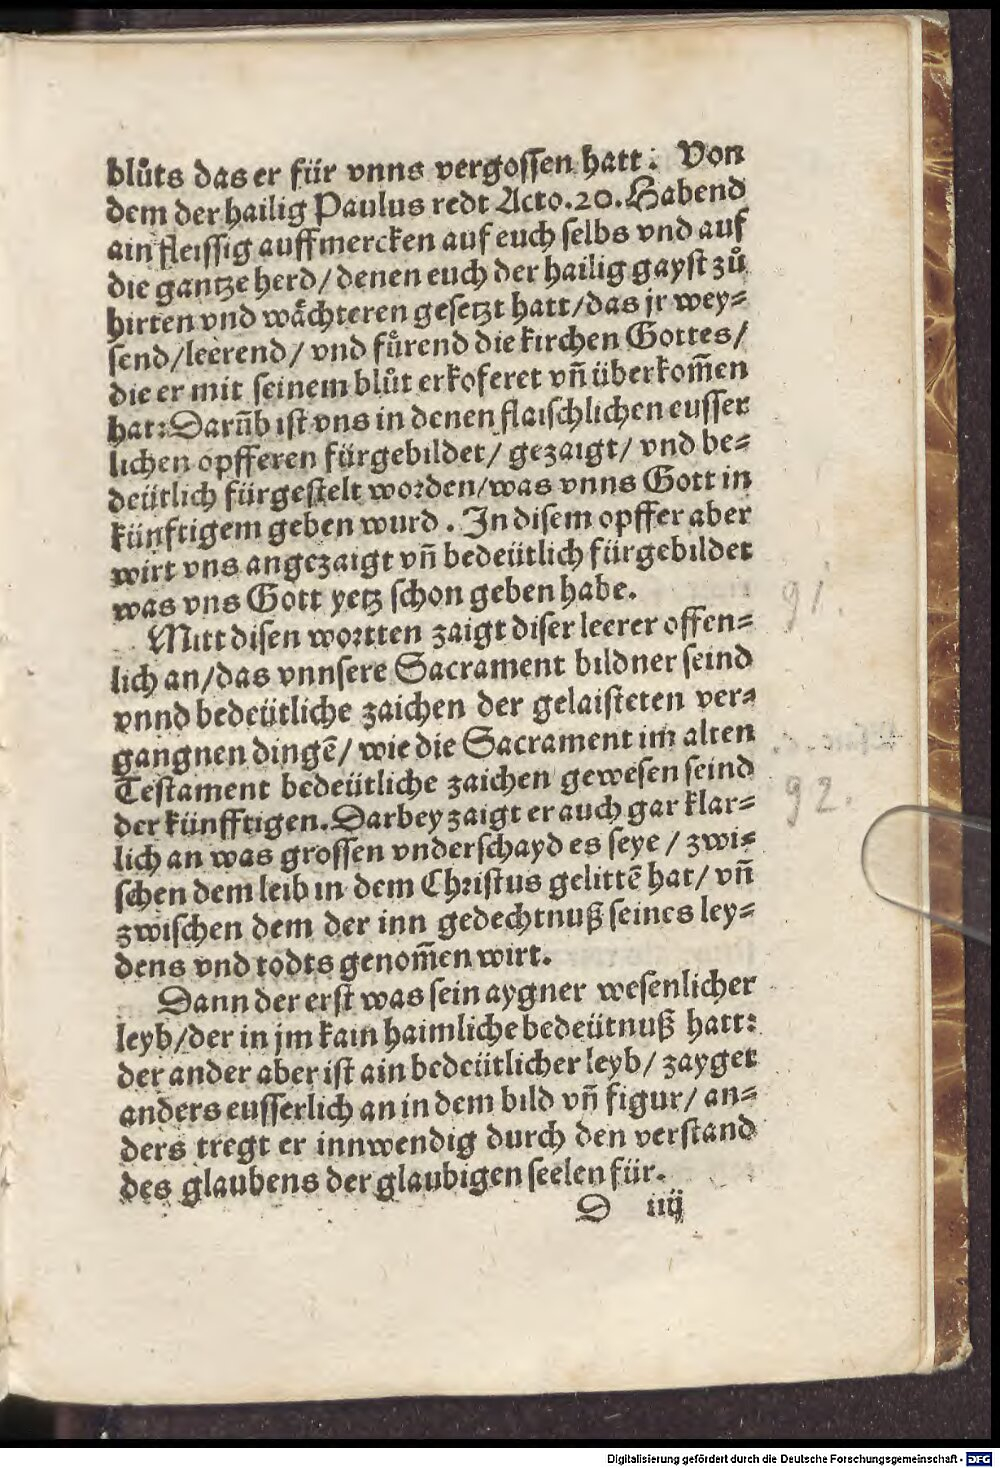 blůts das er für vnns vergossen hatt: Von
dem der hailig Paulus redt Acto.20. Habend
ain fleissig auffmercken auf euch selbs vnd auf
die gantze herd/denen euch der hailig gayst zů
hirten vnd wåchteren gesetzt hatt/das jr wey⸗
send/leerend/ vnd fůrend die kirchen Gottes/
die er mit seinem blůt erkoferet vñ überkom̃en
hat: Darũb ist vns in denen flaischlichen eusser
lichen opfferen fürgebildet/ gezaigt/ vnd be⸗
deütlich fürgestelt worden/was vnns Gott in
künftigem geben wurd. In disem opffer aber
wirt vns angezaigt vñ bedeütlich fürgebildet
was vns Gott yetz schon geben habe.
Mitt disen wortten zaigt diser leerer offen⸗
lich an/das vnnsere Sacrament bildner seind
vnnd bedeütliche zaichen der gelaisteten ver⸗
gangnen dingẽ/ wie die Sacrament im alten
Testament bedeütliche zaichen gewesen seind
der künfftigen. Darbey zaigt er auch gar klar⸗
lich an was grossen vnderschayd es seye/ zwi⸗
schen dem leib in dem Christus gelittẽ hat/ vñ
zwischen dem der inn gedechtnuß seines ley⸗
dens vnd todts genom̃en wirt.
Dann der erst was sein aygner wesenlicher
leyb/der in jm kain haimliche bedeütnuß hatt:
der ander aber ist ain bedeütlicher leyb/ zayget
anders eusserlich an in dem bild vñ figur/ an⸗
ders tregt er innwendig durch den verstand
des glaubens der glaubigen seelen für.
D iiij
91.
92.
Digitalisierung gefördert durch die Deutsche Forschungsgemeinschaft - DFG